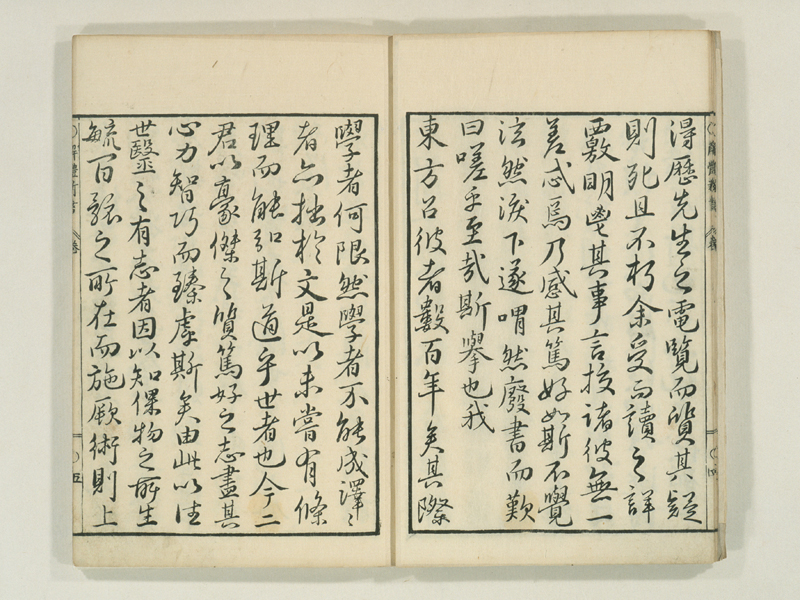 得歷先生之電覽而質其疑
則死且不朽余受而讀之詳
覈明鬯其事言挍諸彼無一
差忒焉乃感其篤好如斯不覺
泫然淚下遂喟然廢書而歎
曰嗟乎至哉斯擧也我
東方呂彼者數百年矣其際
學者何限然學者不能成譯譯
者亦拙於文是以未嘗有條
理而能弘斯道乎世者也今二
君以豪傑之質篤好之志盡其
心力智巧而臻虖斯矣由此以往
世毉之有志者因以知倮物之所生
毓百骸之所在而施厥術則上
解體新書
卷
五